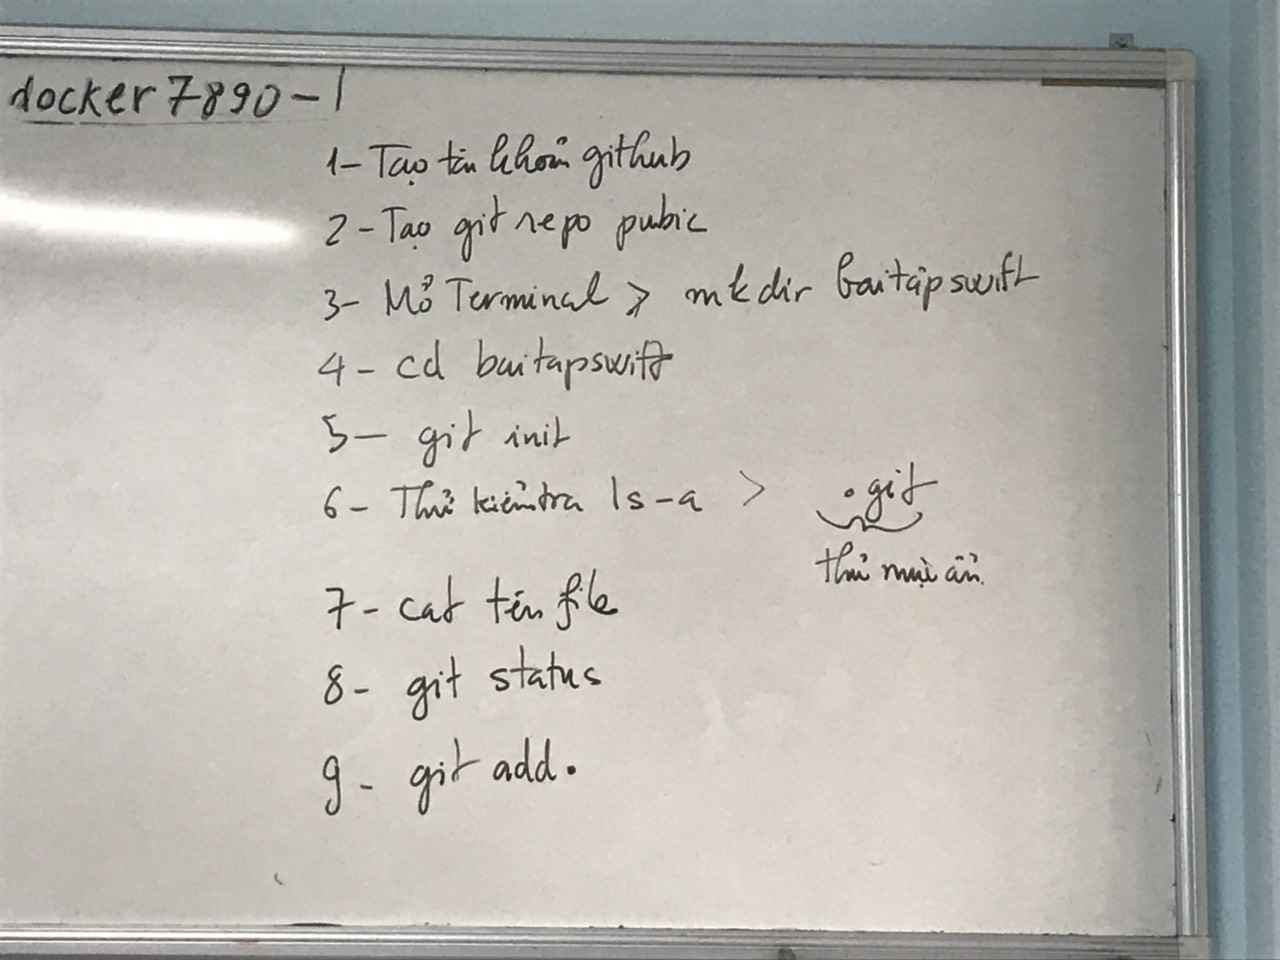 docker7890-1
1- Tạo tài khoản github
2- Tạo git repo pubic
3- Mở Terminal > mkdir baitapswift
4- cd baitapswift
5- git init
6- Thử kiểm tra ls -a > .git
thư mục ẩn.
7- cat tên file
8- git status
9- git add .